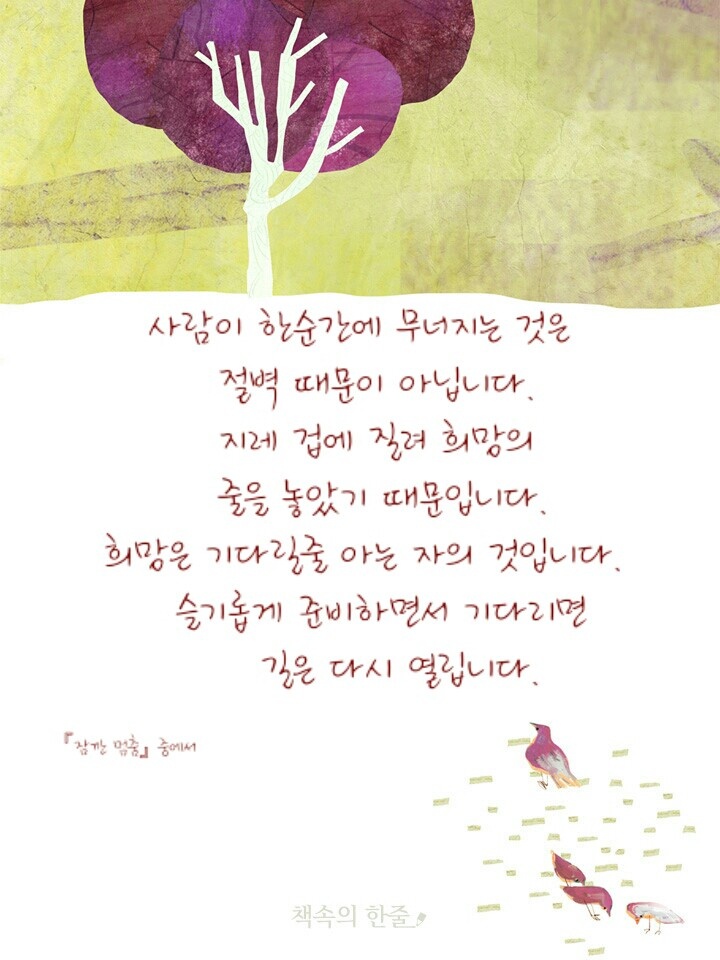 사람이 한순간에 무너지는 것은
절벽 때문이 아닙니다.
지레 겁에 질려 희망의
줄을 놓았기 때문입니다.
희망은 기다릴줄 아는 자의 것입니다.
슬기롭게 준비하면서 기다리면
길은 다시 열립니다.
『잠깐 멈춤』 중에서
책속의 한줄